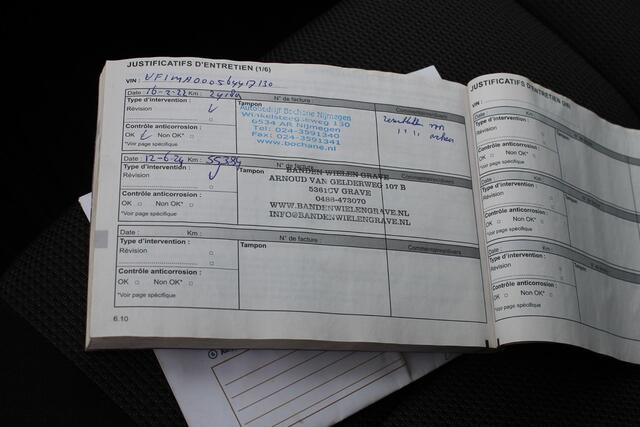 JUSTIFICATIFS D'ENTRETIEN (1/6)
VIN :
Date : 16-2-22 Km :
N° de facture :
Type d'intervention :
Révision
Tampon
Autobedrijf Bochane Nijmegen
Winkelsteegseweg 130
6534 AR Nijmegen
Tel: 024-3591340
Fax: 024-3591341
www.bochane.nl
Commentaires/divers
Contrôle anticorrosion :
OK Non OK*
*Voir page spécifique
Date : 12-6-24 Km :
N° de facture :
Type d'intervention :
Révision
Tampon
BANDEN WIELEN GRAVE
ARNOUD VAN GELDERWEG 107 B
5361CV GRAVE
0486-473070
WWW.BANDENWIELENGRAVE.NL
INFO@BANDENWIELENGRAVE.NL
Commentaires/divers
Contrôle anticorrosion :
OK Non OK*
*Voir page spécifique
Date : Km :
N° de facture :
Type d'intervention :
Révision
Tampon
Commentaires/divers
Contrôle anticorrosion :
OK Non OK*
*Voir page spécifique
6.10
JUSTIFICATIFS D'ENTRETIEN
VIN :
Date : Km :
Type d'intervention :
Révision
Contrôle anticorrosion :
OK Non OK*
*Voir page spécifique
Date : Km :
Type d'intervention :
Révision
Contrôle anticorrosion :
OK Non OK*
*Voir page spécifique
Date : Km :
Type d'intervention :
Révision
Contrôle anticorrosion :
OK Non OK*
*Voir page spécifique